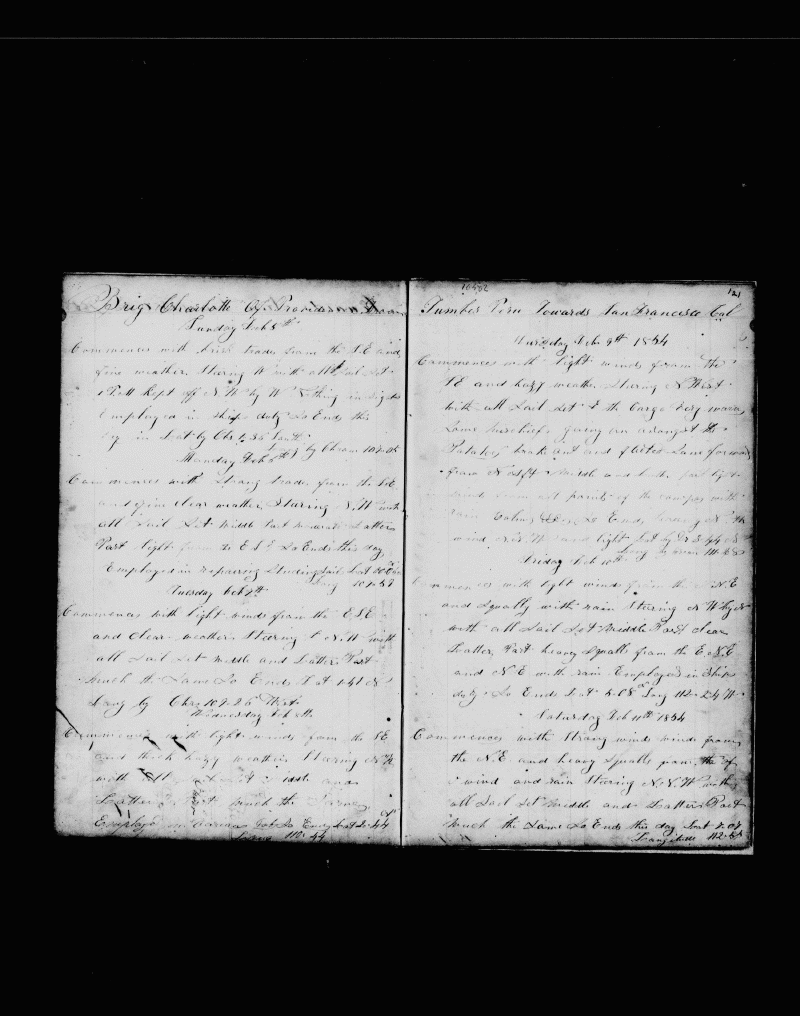 Brig Charlotte Of Providence From
Sunday Feb 5th
Commences with brisk trades from the S.E. and
fine weather Steering W with all Sail Set
kept off N.W. by W nothing in Sight
Employed in Ships duty So Ends this
day in Lat by Chr 1.35 South
by Chrom
Monday Feb 6th
Commences with Strong trades from the SE
and fine clear weather Steering N.W with
all Sail Set Middle Part moderate Latter
Part light from the E.S.E So Ends this day
Employed in repairing Studingsail Lat 00
Long 107.57
Tuesday Feb 7th
Commences with light winds from the E.S.E
and clear weather Steering N.W with
all Sail Set middle and Latter Part
much the Same So Ends Lat 1.41 N
Long by Chr 109.26 West
Wednesday Feb 8th
Commences with light winds from the SE
and thick hazy weather Steering N.W
with all Sail Set middle and
Latter Part much the Same
Employed on various Jobs So Ends Lat 2.44 N
Long 110.44
10502
121
Tumbes Peru Towards San Francisco Cal
Thursday Feb 9th 1854
Commences with light winds from the
SE and hazy weather Steering N West
with all Sail Set the Cargo very warm
Some mischief going on amongst the
Potatoes took out and Same forward
from aft Middle and Latter part light
wind from all points of the compass with
rain Calms So Ends Steering N.W
wind light Lat by Dr 3.44 N
Long
Friday Feb 10th
Commences with light winds from the N.E
and Squally with rain Steering N W by N
with all Sail Set Middle Part clear
Latter Part heavy Squalls from the E.N.E
and N.E with rain Employed in Ships
duty So Ends Lat 5.08 N Long 112.24 W
Saturday Feb 11th 1854
Commences with Strong winds from
the N.E. and heavy Squalls of
wind and rain Steering N.N.W with
all Sail Set Middle and Latter Part
Much the Same So Ends this day Lat
Longitude 112